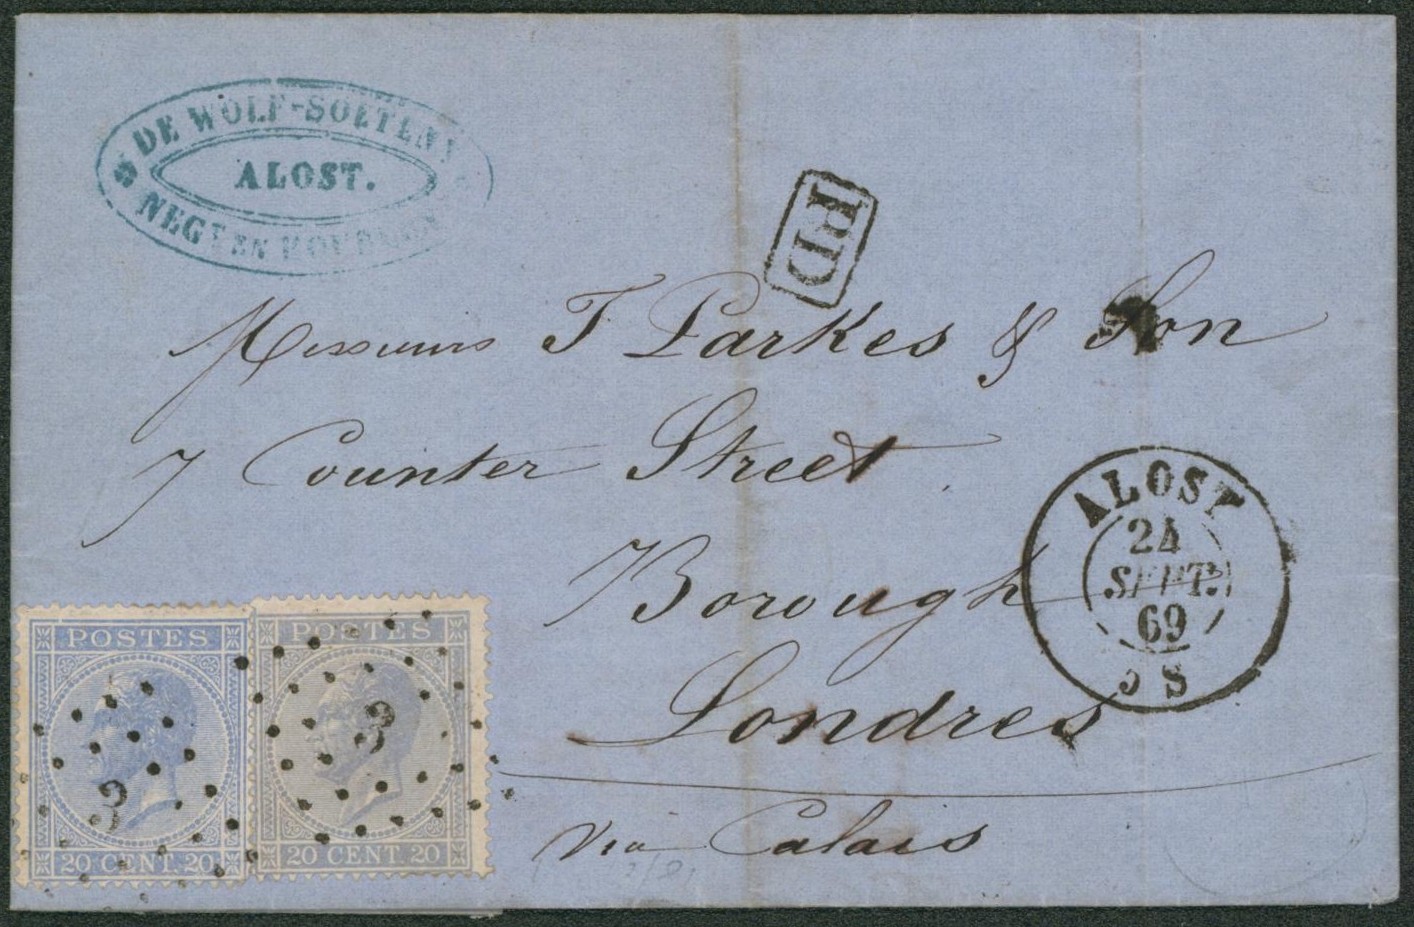 DE WOLF-SOETENS
ALOST.
NEGT EN
PD
Messieurs T Parkes & Son
7 Counter Street
Borough
Londres
via Calais
ALOST
24
SEPT.
69
5 S
POSTES
3
20 CENT. 20
POSTES
3
20 CENT. 20